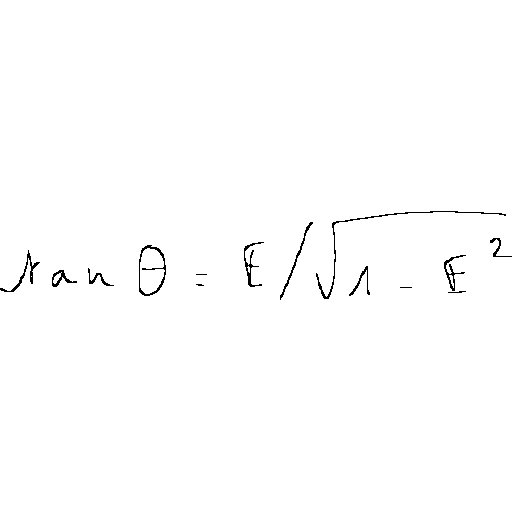 tan θ = E/√1 - E²